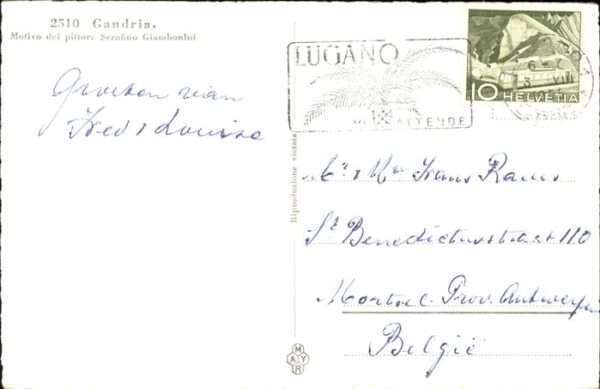 2510 Gandria.
Motivo del pittore Serafino Giambonini
Groeten van
Fred & Louisa
LUGANO
VI ATTENDE
10 HELVETIA
Riproduzione vietata
Mr & Mme Frans Rams
St Benedictusstraat 110
Mortsel Prov. Antwerpen
België
MAYR